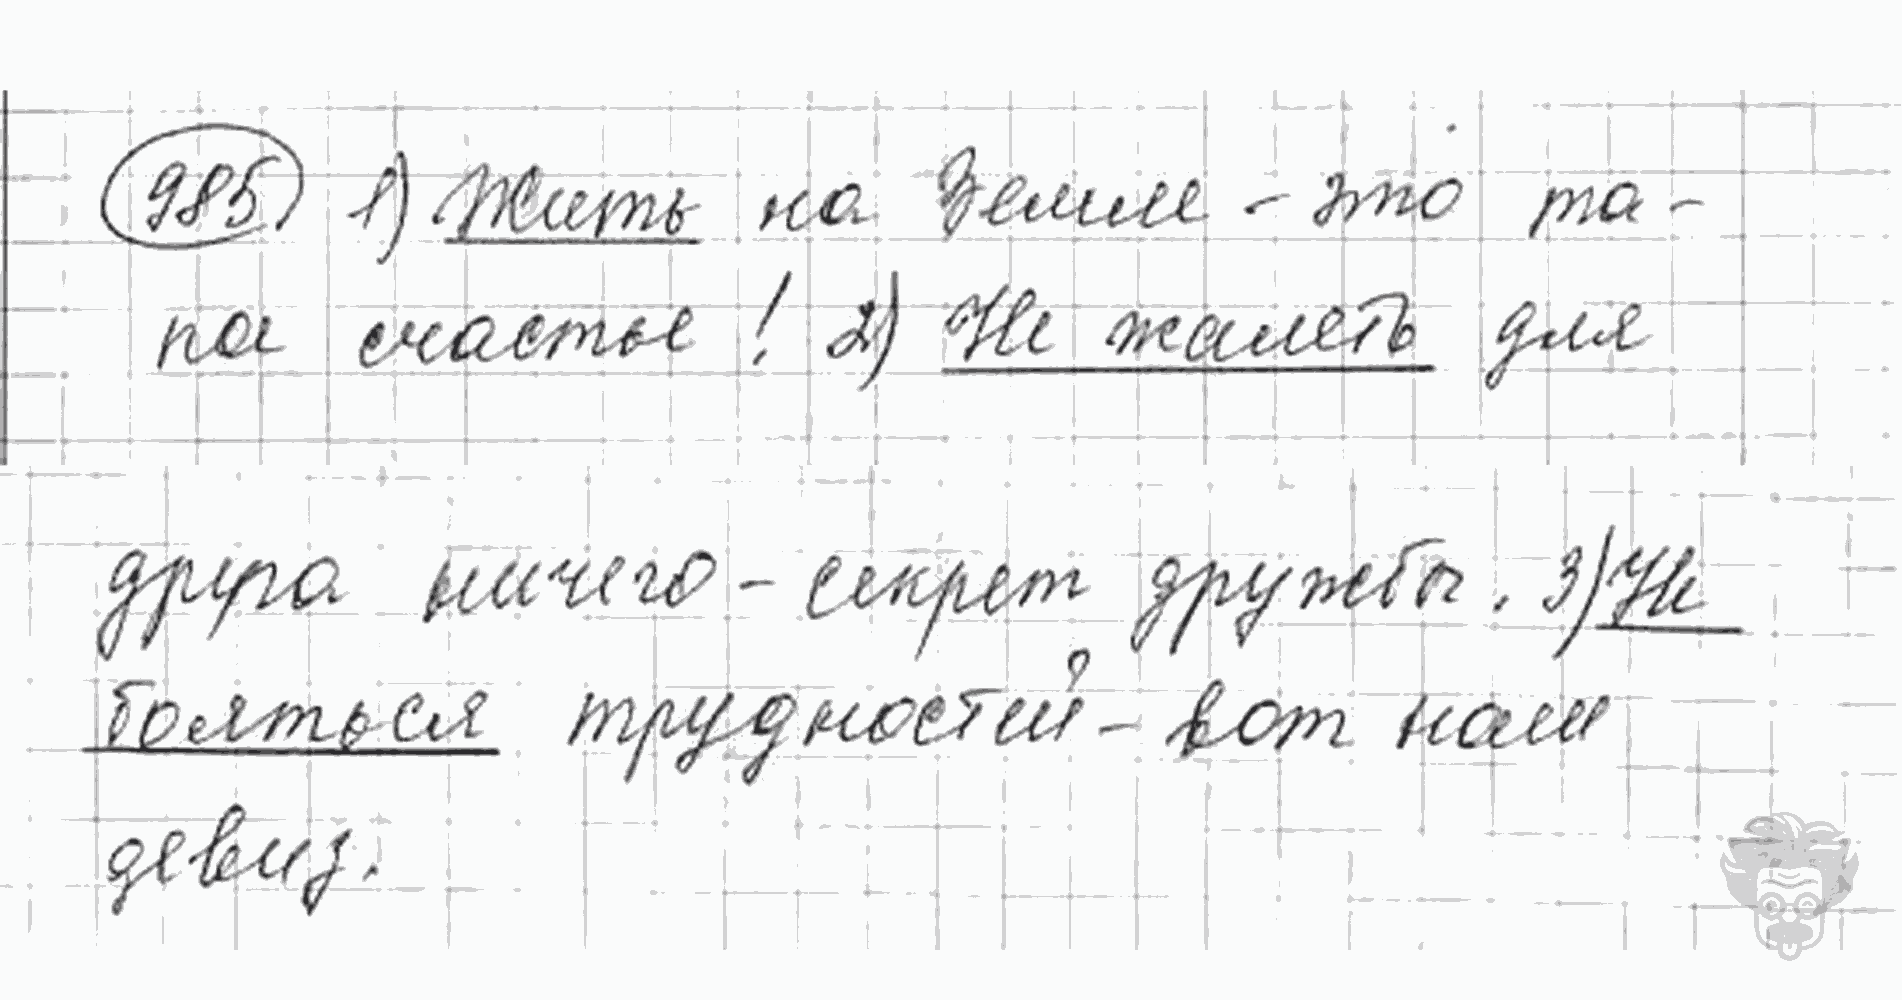 985 1) Жить на Земле - это та-
кое счастье! 2) Не жалеть для
друга ничего - секрет дружбы. 3) Не
бояться трудностей - вот наш
девиз.